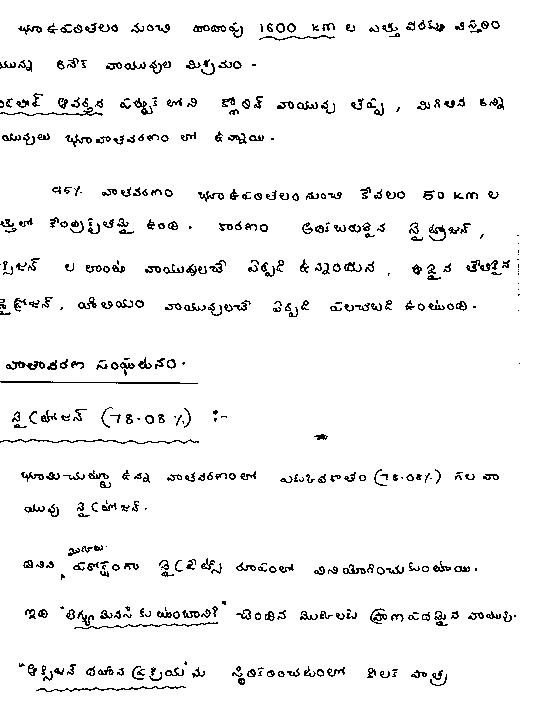 భూఉపరితలం నుంచి దాదాపు 1600 km ల ఎత్తు వరకు విస్తరిం
యున్న అనేక వాయువుల మిశ్రమం.
ఆవర్తన పట్టిక లోని క్లోరిన్ వాయువు తప్ప, మిగతా అన్ని
యువులు భూవాతావరణం లో ఉన్నాయి.
95% వాతావరణం భూఉపరితలం నుంచి కేవలం 50 km ల
త్తులో కేంద్రీకృతమై ఉంది. కారణం బరువైన నైట్రోజన్,
క్సిజన్ ల లాంటి వాయువులచే ఏర్పడి ఉన్నందున, పైన తేలికైన
హైడ్రోజన్, హీలియం వాయువులచే ఏర్పడి పలుచబడి ఉంటుంది.
వాతావరణ సంఘటనం.
నైట్రోజన్ (78.08%) :-
భూమి చుట్టూ ఉన్న వాతావరణంలో ఎక్కువశాతం (78.08%) గల వా
యువు నైట్రోజన్.
దీనిని పరోక్షంగా నైట్రేట్స్ రూపంలో వినియోగించుకుంటాయి.
ఇది చెందిన మొక్కలకు ప్రాణప్రదమైన వాయువు.
"ఆక్సిజన్ దహన ప్రక్రియ"ను స్థిరీకరించుటలో కీలక పాత్ర